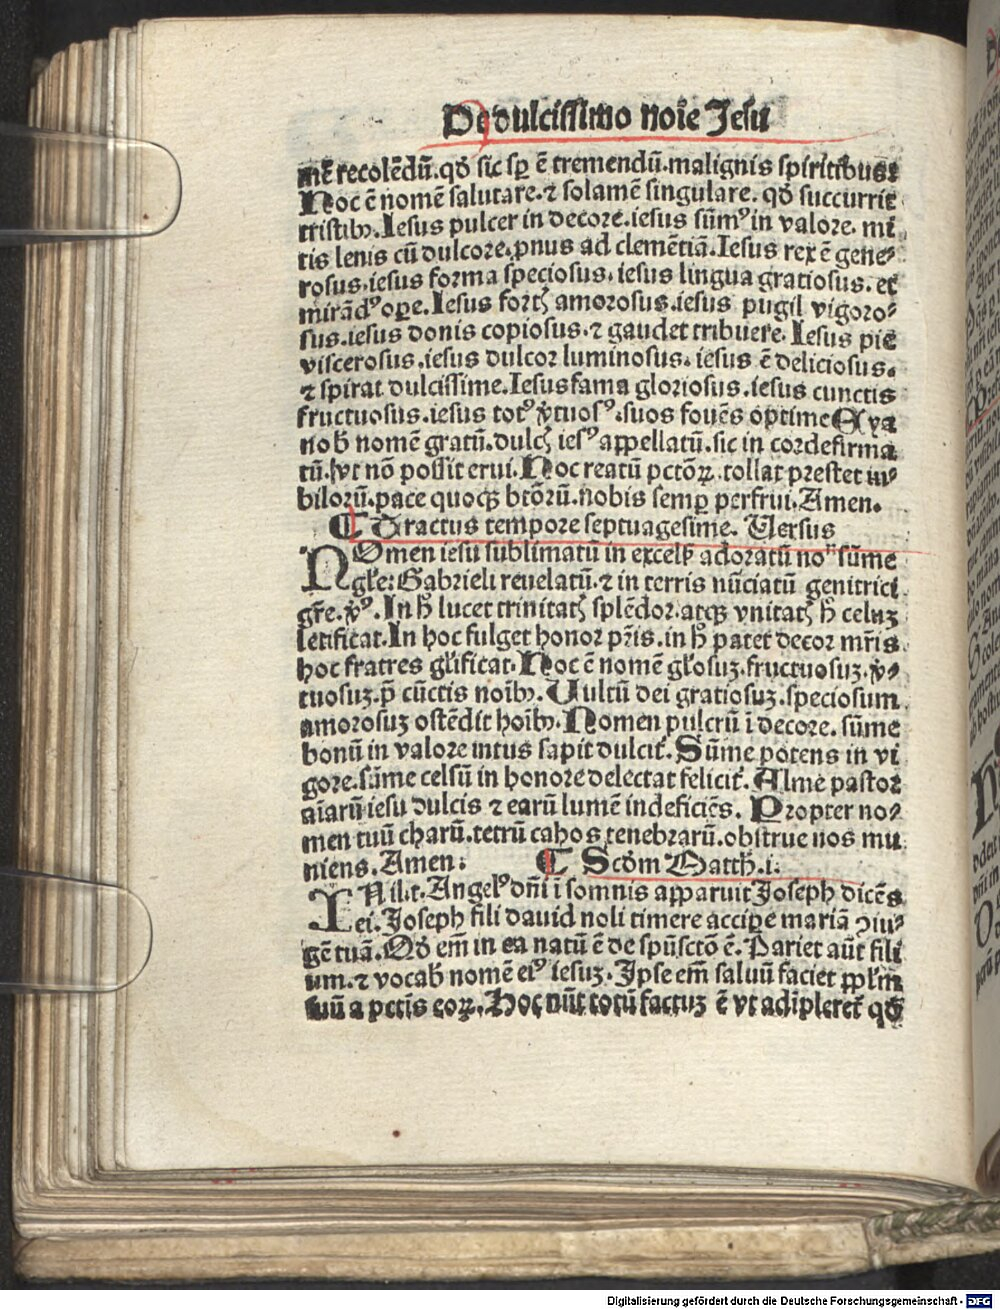 De dulcissimo noīe Jesu
me recolēdū.qđ sic sꝑ ē tremendū.malignis spiritibus:
Hoc ē nomē salutare.⁊ solamē singulare. qđ succurrit
tristibꝫ.Iesus pulcer in decore.iesus sūmꝰ in valore. mi
tis lenis cū dulcore.ꝓnus ad clemētiā.Iesus rex ē gene⸗
rosus.iesus forma speciosus. iesus lingua gratiosus. et
mirādꝰ oꝑe.Iesus fortꝭ amorosus.iesus pugil vigoro⸗
sus.iesus donis copiosus.⁊ gaudet tribuere. Iesus pie
viscerosus.iesus dulcor luminosus. iesus ē deliciosus.
⁊ spirat dulcissime.Iesus fama gloriosus.iesus cunctis
fructuosus.iesus totꝰ v̾tuosꝰ.suos fouēs optime Eya
nob̄ nomē gratū.dulcꝭ iesꝰ appellatū.sic in corde firma
tū.vt nō possit erui. Hoc reatū pctōꝝ. tollat prestet iu⸗
bilorū.pace quoqꝫ btōrū.nobis semꝑ perfrui.Amen.
¶ Tractus tempore septuagesime. Versus
NOmen iesu sublimatū in excelꝭ adoratū noīs sūme
gl̄e: Gabrieli reuelatū.⁊ in terris nūciatū genitrici
gr̄e. v̾ꝰ. In h̄ lucet trinitatꝭ splēdor.atqꝫ vnitatꝭ h̄ celuꝫ
letificat.In hoc fulget honor pr̄is.in h̄ patet decor mr̄is
hoc fratres gl̄ificat. Hoc ē nomē gl̄osuꝫ.fructuosuꝫ.v̾⸗
tuosuꝫ.p̄ cūctis noībꝫ. Vultū dei gratiosuꝫ.speciosum
amorosuꝫ ostēdit hoībꝫ. Nomen pulcrū ī decore. sūme
bonū in valore intus sapit dulcit̾. Sūme potens in vi
gore.sūme celsū in honore delectat felicit̾. Alme pastor
aīarū iesu dulcis ⁊ earū lumē indeficiēs. Propter no⸗
men tuū charū.tetrū cahos tenebrarū.obstrue nos mu
niens. Amen: ¶ Scđm Matth.i.
IN il.t. Angelꝰ dn̄i ī somnis apparuit Joseph dicēs
ei. Joseph fili dauid noli timere accipe mariā ꝯiu⸗
gē tuā. Qđ em̄ in ea natū ē de spūsctō ē. Pariet aūt fili
um.⁊ vocab̄ nomē eiꝰ iesuꝫ. Ipse em̄ saluū faciet ppl̄m
suū a pctis eoꝝ. Hoc aūt totū factuꝫ ē vt adipleret̾ qđ
Digitalisierung gefördert durch die Deutsche Forschungsgemeinschaft - DFG